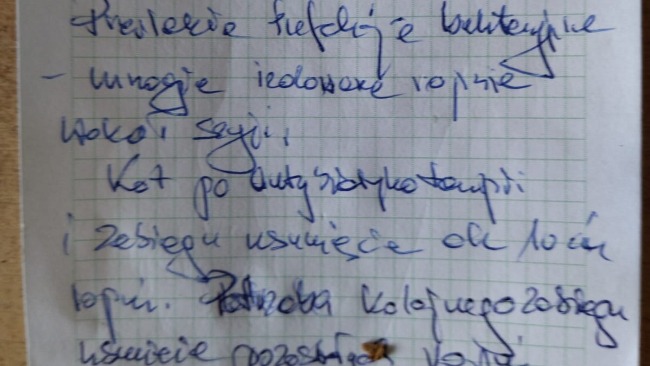 Przewlekłe infekcje bakteryjne
- mnogie izolowane ropnie
wokół szyi,
Kot po antybiotykoterapii
i zabiegu usunięcia ok 10 cm
ropni. Potrzeba kolejnego zabiegu
usunięcie pozostałych